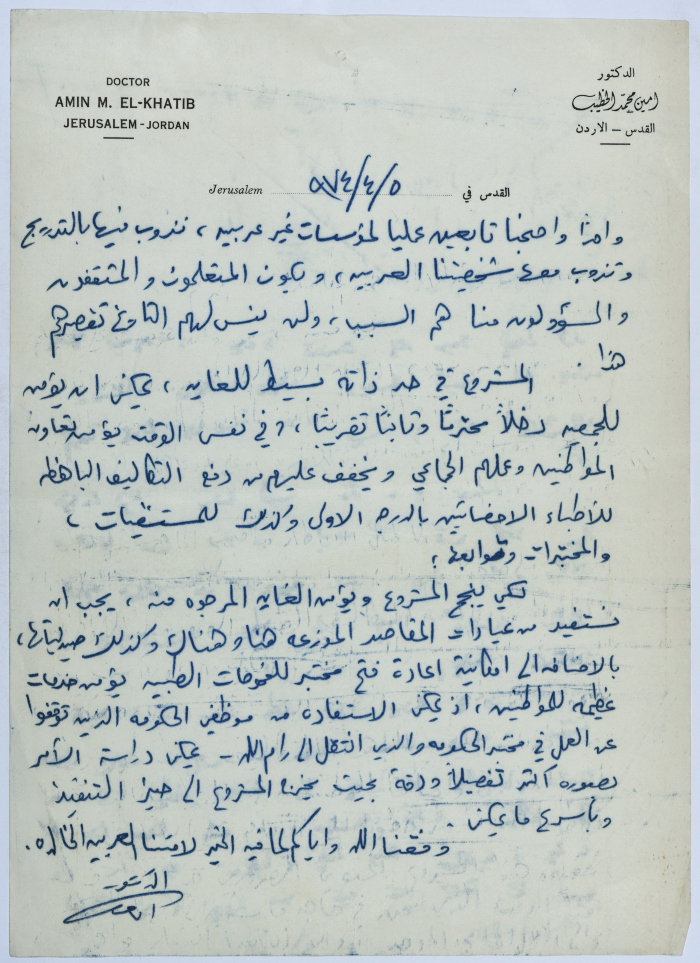 DOCTOR
AMIN M. EL-KHATIB
JERUSALEM - JORDAN
الدكتور
امين محمد الخطيب
القدس – الاردن
Jerusalem ٩٧٤/٤/٥ القدس في
واصبحنا تابعين عمليا لمؤسسات غير عربيه ، نذوب فيها بالتدريج
وتذوب معها شخصيتنا العربيه ، ويكون المتعلمون والمثقفون
والمسؤولون منا هم السبب ، ولن ينسى لهم التاريخ تقصيرهم
هذا .
المشروع في حد ذاته بسيط للغايه ، يمكن ان يؤمن
للجمعيه دخلاً محترمًا وثابتًا تقريبًا ، وفي نفس الوقت يؤمن تعاون
المواطنين وعملهم الجماعي ويخفف عليهم من دفع التكاليف الباهظه
للأطباء الاخصائيين بالدرجه الاولى وكذلك للمستشفيات ،
والمختبرات وتوابعها ؛
لكي ينجح المشروع ويؤمن الغايه المرجوه منه ، يجب ان
نستفيد من عيادات المقاصد الموزعه هنا وهناك وكذلك صيدلياتها ،
بالاضافه الى امكانية اعادة فتح مختبر للفحوصات الطبيه يؤمن خدمات
عظيمه للمواطنين ، اذ يمكن الاستفاده من موظفي الحكومه الذين توقفوا
عن العمل في مختبر الحكومه والذي انتقل الى رام الله – يمكن دراسة الأمر
بصوره اكثر تفصيلاً ودقه بحيث يخرج المشروع الى حيز التنفيذ
وبأسرع ما يمكن .
وفقنا الله واياكم لما فيه الخير لامتنا العربيه الخالده .
الدكتور